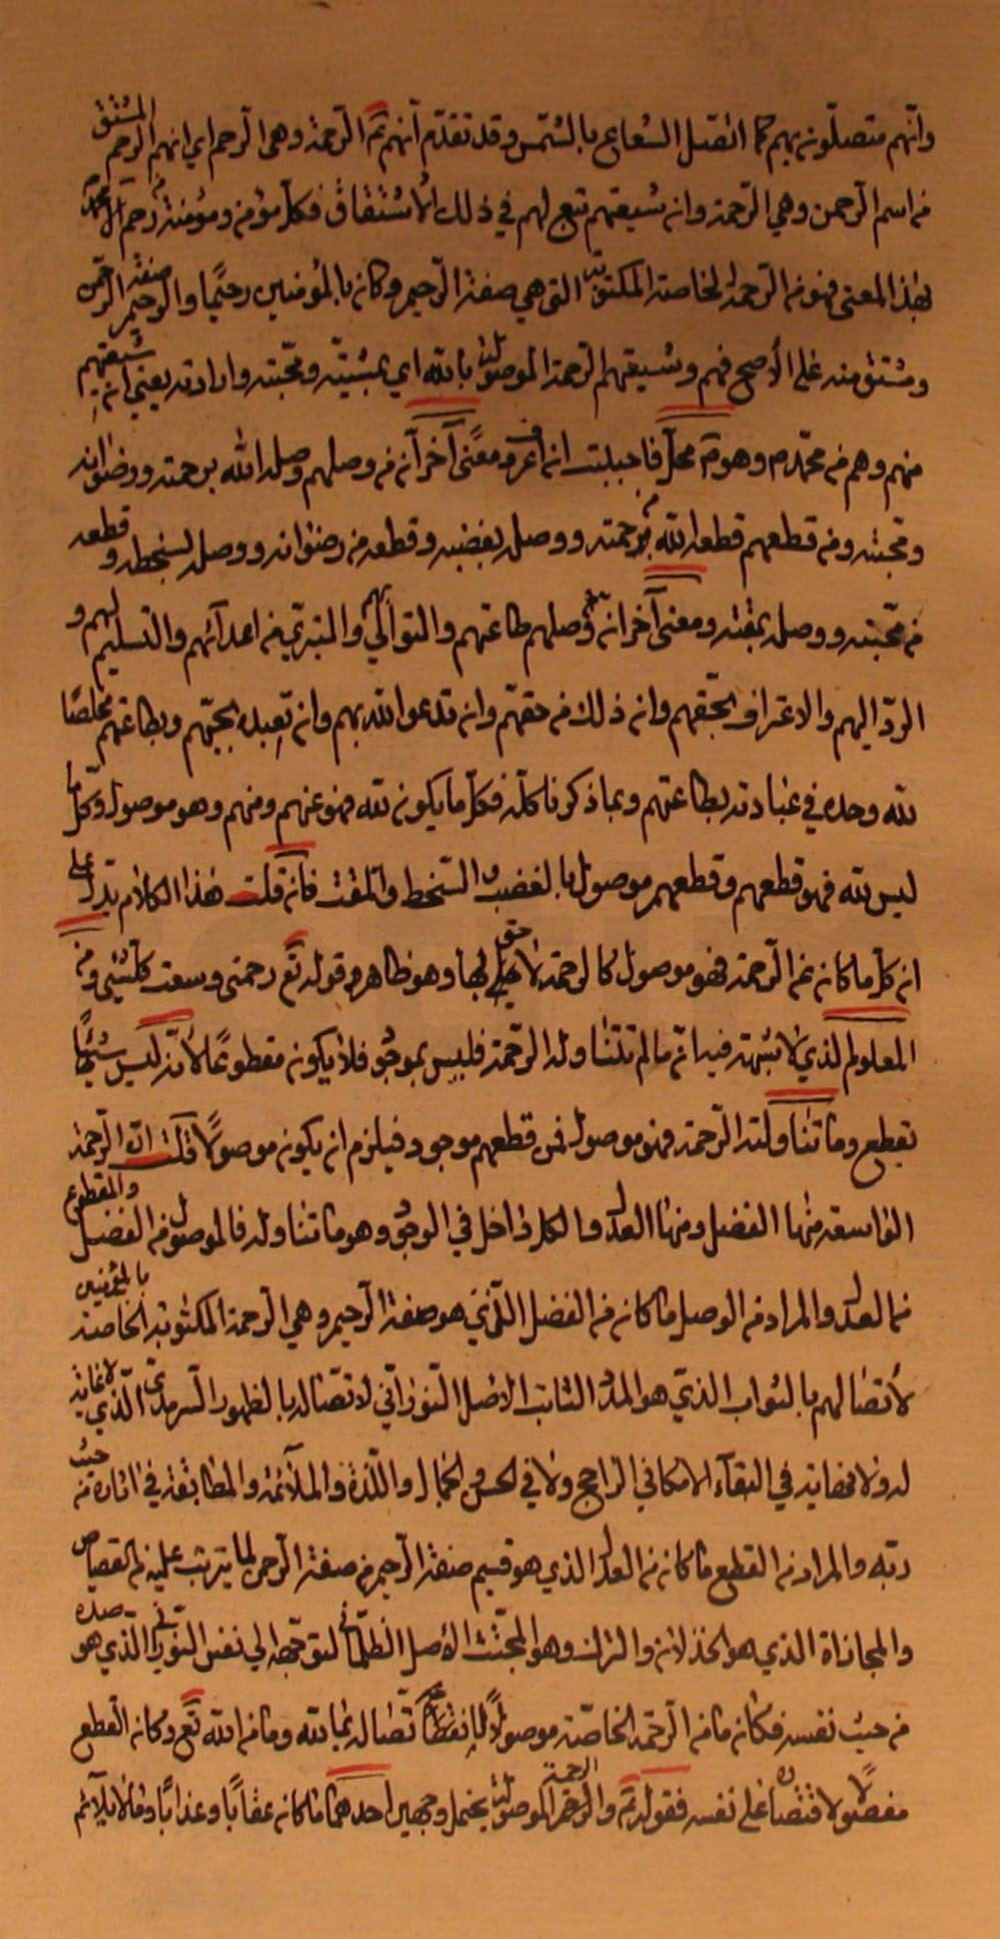 وانهم متصلون بهم كما اتصل الشعاع بالشمس وقد تقدم انهم ثم الرحمة وهى الرحم اي انهم الرحم المشتق
من اسم الرحمن وهي الرحمة وان شيعتهم تبع لهم في ذلك الاشتقاق فكل مؤمن ومؤمنة من رحم آل محمد
بهذا المعنى فهو من الرحمة الخاصة المكتوبة التى هي صفة الرحيم وكان بالمؤمنين رحيما والرحيم صفة الرحمن
ومشتق منه على الأصح فهم وشيعتهم الرحمة الموصولة بالله اي بمشيته ومحبته وارادته يعني ان شيعتهم
منهم وهم من محمد ص وهو ثم محل فاحببت ان اعرف ومعنى آخر ان من وصلهم وصله الله برحمته ورضوانه
ومحبته ومن قطعهم قطعه الله من رحمته ووصله بغضبه وقطعه من رضوانه ووصله بسخطه وقطعه
من محبته ووصله بمقته ومعنى آخر ان وصلهم طاعتهم والتوالي بهم والتبري من اعدآئهم والتسليم لهم و
الرد اليهم والاعتراف بحقهم وان ذلك من حقهم وان تدعو الله بهم وان تعبده بحبهم وبطاعتهم مخلصا
لله وحده في عبادته بطاعتهم وبما ذكرنا كله فكل ما يكون لله فهو عنهم ومنهم وهو موصول وكل ما
ليس لله فهو قطعهم وقطعهم موصول بالغضب والسخط والمقت فان قلت هذا الكلام يدل على
ان كل ما كان من الرحمة فهو موصول كالرحمة لا بها وهو ظاهر وقوله تع رحمتي وسعت كل شيئ ومن
المعلوم الذي لا شبهة فيه ان ما لم تتناوله الرحمة فليس بموجود فلا يكون مقطوعا لانه ليس شيئا
يقطع وما تناولته الرحمة فهو موصول فمن قطعهم موجود فيلزم ان يكون موصولا قلت ان الرحمة
الواسعة منها الفضل ومنها العدل والكل داخل في الوجود وهو ما تناوله فالموصول من الفضل والمقطوع
من العدل والمراد من الوصل ما كان من الفضل الذي هو صفة الرحيم وهي الرحمة المكتوبة الخاصة بالمؤمنين
لاتصالهم بالثواب الذي هو المدد الثابت الاصل النوراني لاتصاله بالظهور السرمدي الذي لا غاية
له ولا نهاية في البقآء الامكاني الراجح ولا في الحسن والجمال واللذة والملآئمة والمطابقة في اثاره من حيث
ربه والمراد من القطع ما كان من العدل الذي هو قسيم صفة الرحيم من صفة الرحمن لما يترتب عليه من القصاص
والمجازاة الذي هو الخذلان والترك وهو المجتث الاصل الظلماني لتوجهه الي نفس النوراني الذي هو ضده
من حيث نفسه فكان ما من الرحمة الخاصة موصولا لاتصاله بما لله وما من الله تع وكان القطع
مفصولا لاقتصاره على نفسه فقوله ثم والرحم الرحمة الموصولة يحتمل وجهين احدهما ما كان عقابا وعذابا وما لا يلآئم